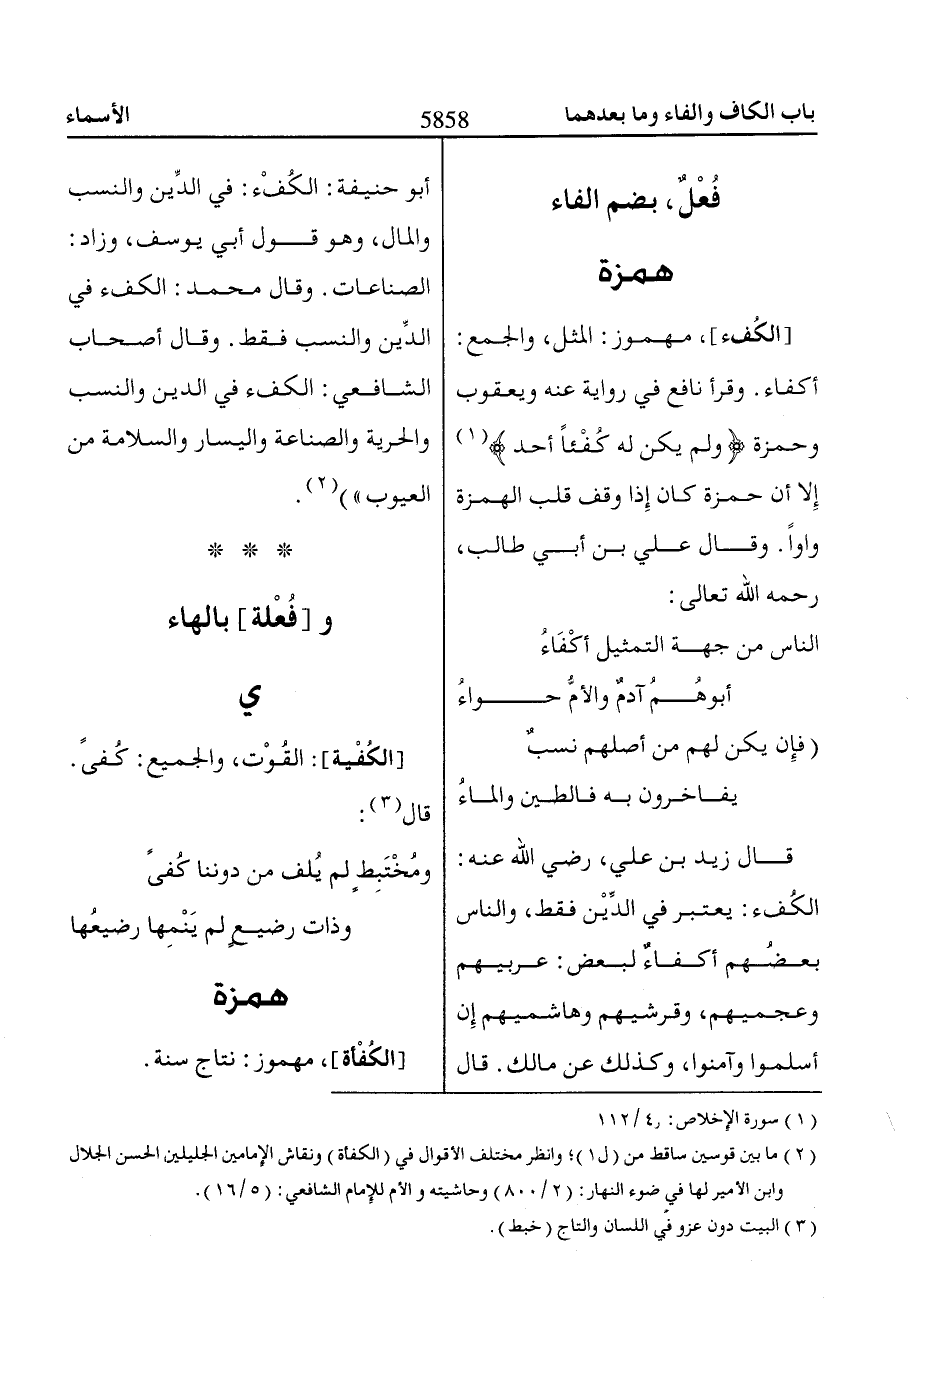 باب الكاف والفاء وما بعدهما 5858 الأسماء
فُعْلٌ، بضم الفاء
همزة
[الكُفء]، مهموز: المثل، والجمع:
أكفاء. وقرأ نافع في رواية عنه ويعقوب
وحمزة ﴿ولم يكن له كُفْئاً أحد﴾(١)
إلا أن حمزة كان إذا وقف قلب الهمزة
واواً. وقال علي بن أبي طالب،
رحمه الله تعالى:
الناس من جهة التمثيل أكْفَاءُ
أبوهُمُ آدمٌ والأمُّ حواءُ
(فإن يكن لهم من أصلهم نسبٌ
يفاخرون به فالطين والماءُ
قال زيد بن علي، رضي الله عنه:
الكُفء: يعتبر في الدِّيْن فقط، والناس
بعضُهم أكفاءٌ لبعض: عربيهم
وعجميهم، وقرشيهم وهاشميهم إن
أسلموا وآمنوا، وكذلك عن مالك. قال
أبو حنيفة: الكُفْء: في الدِّين والنسب
والمال، وهو قول أبي يوسف، وزاد:
الصناعات. وقال محمد: الكفء في
الدِّين والنسب فقط. وقال أصحاب
الشافعي: الكفء في الدين والنسب
والحرية والصناعة واليسار والسلامة من
العيوب»)(٢).
* * *
و [فُعْلة] بالهاء
ي
[الكُفْية]: القُوْت، والجميع: كُفىً.
قال(٣):
ومُخْتَبِطٍ لم يُلف من دوننا كُفىً
وذات رضيعٍ لم يَنْمِها رضيعُها
همزة
[الكُفْأة]، مهموز: نتاج سنة.
(١) سورة الإخلاص: ٤/١١٢
(٢) ما بين قوسين ساقط من (ل١)؛ وانظر مختلف الأقوال في (الكفأة) ونقاش الإمامين الجليلين الحسن الجلال
وابن الأمير لها في ضوء النهار: (٨٠٠/٢) وحاشيته و الأم للإمام الشافعي: (١٦/٥).
(٣) البيت دون عزو في اللسان والتاج (خبط).